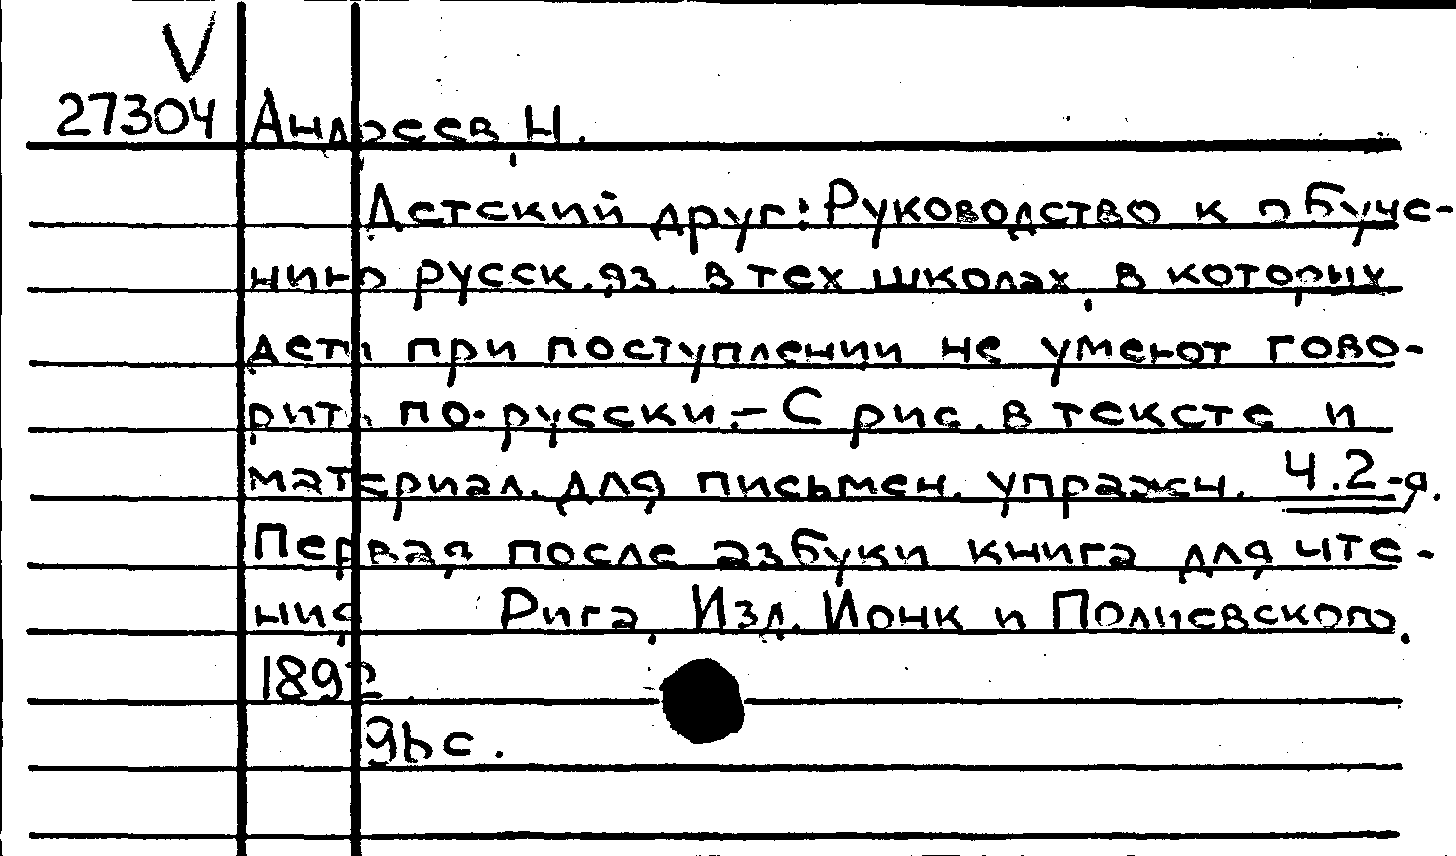 V
27304 Андреев, Н.
Детский друг: Руководство к обуче-
нию русск. яз. в тех школах, в которых
дети при поступлении не умеют гово-
рить по-русски. – С рис. в тексте и
материал. для письмен. упражн. Ч. 2-я.
Первая после азбуки книга для чте-
ния Рига, Изд. Ионк и Полиевского,
1892.
96 с.